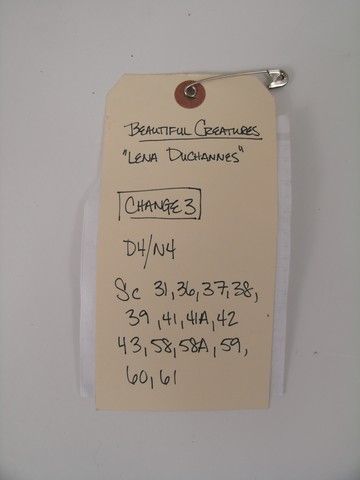 BEAUTIFUL CREATURES
"LENA DUCHANNES"
CHANGE 3
D4/N4
Sc 31, 36, 37, 38,
39, 41, 41A, 42
43, 58, 58A, 59,
60, 61